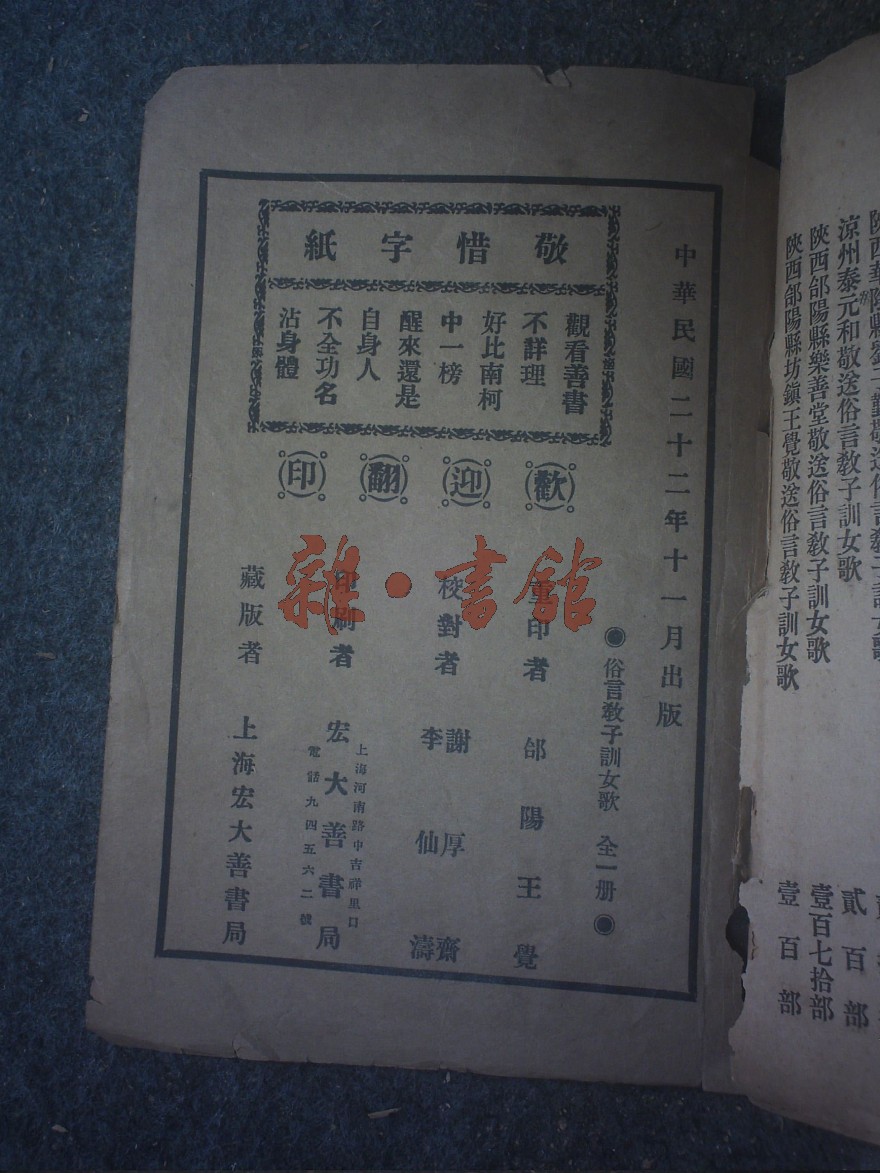 陝西華陰縣
敬送俗言教子訓女歌
涼州泰元和敬送俗言教子訓女歌
貳百部
陝西郃陽縣樂善堂敬送俗言教子訓女歌
壹百七拾部
陝西郃陽縣坊鎮王覺敬送俗言教子訓女歌
壹百部
中華民國二十二年十一月出版
敬惜字紙
觀看善書
不詳理
好比南柯
中一榜
醒來還是
自身人
不全功名
沾身體
歡迎翻印
◉俗言教子訓女歌 全一册◉
重印者 郃陽王覺
校對者 謝厚齋
李仙濤
印刷者 宏大善書局
上海河南路中吉祥里口
電話九四五六二號
藏版者 上海宏大善書局
雜·書館